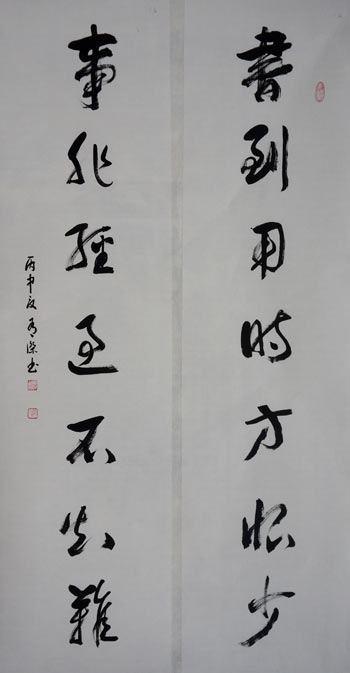 書到用時方恨少
事非經過不知難
丙申夏
書